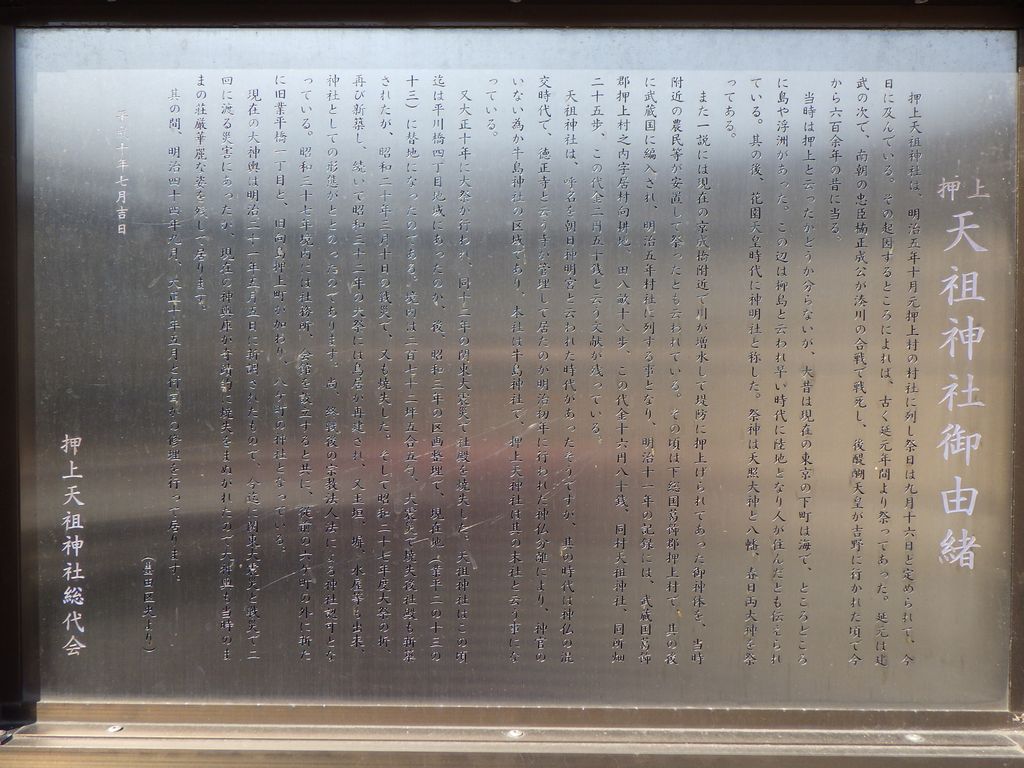 押上 天祖神社御由緒
押上天祖神社は、明治五年十月元押上村の村社に列し祭日は九月十六日と定められて、今
日に及んでいる。その起因するところによれば、古く延元年間より祭ってあった。延元は建
武の次で、南朝の忠臣楠正成公が湊川の合戦で戦死し、後醍醐天皇が吉野に行かれた頃で今
から六百余年の昔に当る。
当時は押上と云ったかどうか分らないが、大昔は現在の東京の下町は海で、ところどころ
に島や浮洲があった。この辺は柳島と云われ早い時代に陸地となり人が住んだとも伝えられ
ている。其の後、花園天皇時代に神明社と称した。祭神は天照大神と八幡、春日両大神を祭
ってある。
また一説には現在の京成橋附近で川が増水して堤防に押上げられてあった御神体を、当時
附近の農民等が安置して祭ったとも云われている。その頃は下総国葛飾郡押上村で、其の後
に武蔵国に編入され、明治五年村社に列する事となり、明治十一年の記録には、武蔵国葛飾
郡押上村之内字居村向耕地、田八畝十八歩、この代金十六円八十銭、同村天祖神社、同所畑
二十五歩、この代金二円五十銭と云う文献が残っている。
天祖神社は、呼名を朝日神明宮と云われた時代があったそうですが、其の時代は神仏の混
交時代で、徳正寺と云う寺が管理して居たのが明治初年に行われた神仏分離により、神官の
いない為か牛島神社の区域であり、本社は牛島神社で、押上天祖神社は其の末社と云う事にな
っている。
又大正十年に大祭が行われ、同十二年の関東大震災で社殿を焼失した。天祖神社はこの頃
迄は平川橋四丁目地域にあったのが、後、昭和三年の区画整理で、現在地（業平二の十三の
十三）に替地になったのである。境内は二百七十二坪五合五勺、大震災で焼失後社殿も新築
されたが、昭和二十年三月十日の戦災で、又も焼失した。そして昭和二十七年度大祭の折、
再び新築し、続いて昭和三十二年の大祭には鳥居が再建され、又玉垣、塀、水屋等も出来、
神社としての形態がととのったのであります。尚、終戦後の宗教法人法による神社認可とな
っている。昭和三十七年境内には社務所、会館を設立すると共に、従前の六ヶ町の外に新た
に旧業平橋一丁目と、旧向島押上町が加わり、八ヶ町の神社となっている。
現在の大神輿は明治三十一年五月五日に新調されたもので、今迄に関東大震災と戦災で二
回に渡る災害にあったが、現在の神輿庫が奇蹟的に焼失をまぬがれたので大神輿も当時のま
まの荘厳華麗な姿を残して居ります。
其の間、明治四十四年九月、大正十年五月と何回かの修理を行って居ります。
（墨田区史より）
十年七月吉日
押上天祖神社総代会